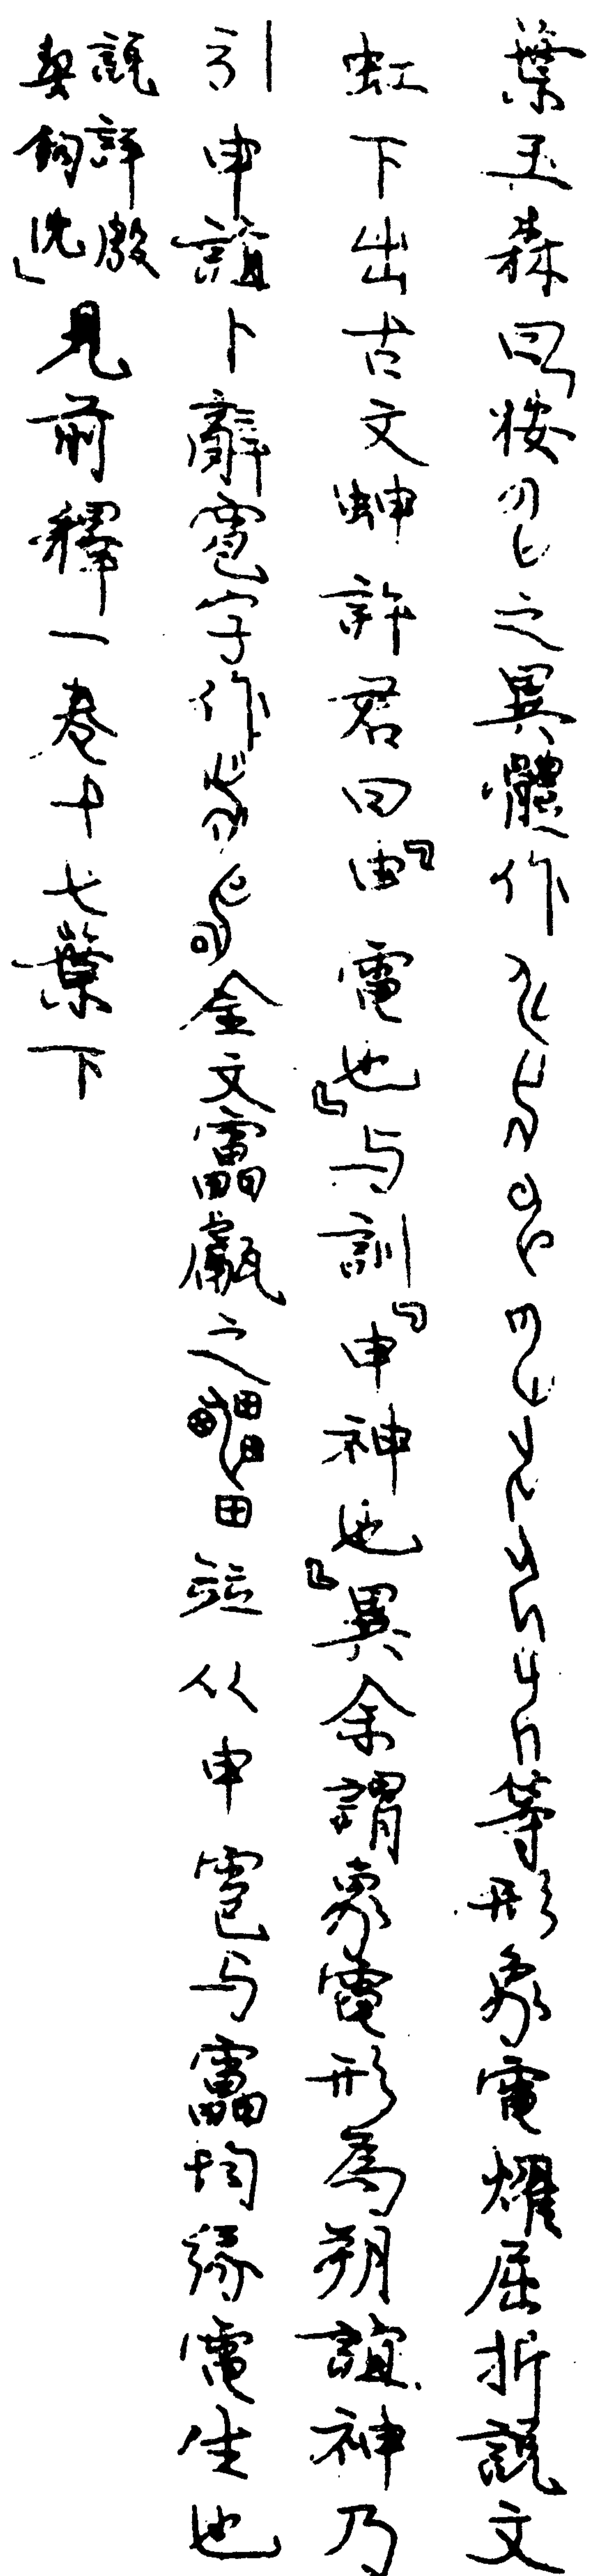 葉玉森曰按之異體作等形象電燿屈折說文
虹下出古文𧌡許君曰『申電也』与訓『申神也』異余謂象電形為朔誼神乃
引申誼卜辭雹字作金文靁甗之竝从申雹与靁均緣電生也
說詳殷
契鉤沈」見前釋一卷十七葉下